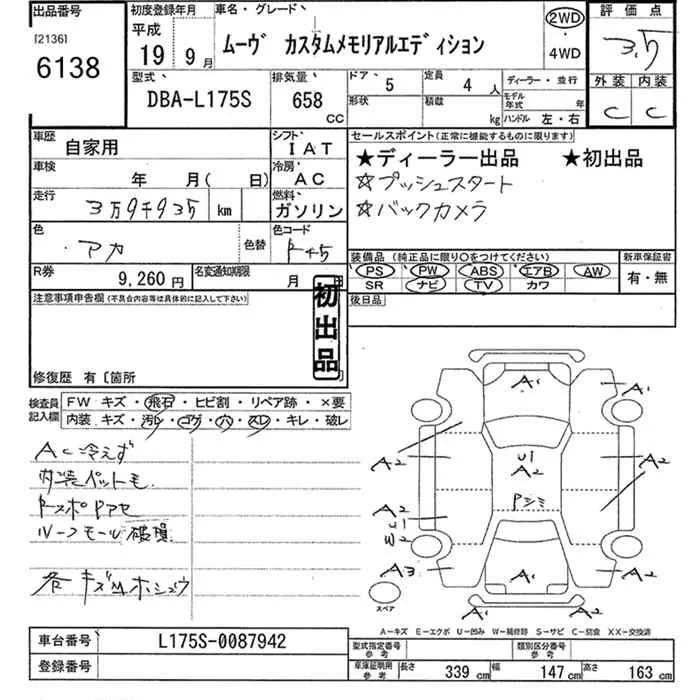 出品番号
[2136]
6138
初度登録年月
平成
19 9月
車名・グレード
ムーヴ カスタムメモリアルエディション
2WD
・
4WD
評価点
3.5
外装 内装
C C
型式
DBA-L175S
排気量
658
CC
ドア 5
形状
定員 4 人
積載 kg
ディーラー・並行
モデル年式 年
ハンドル 左・右
車歴 自家用
シフト IAT
車検 年 月( 日)
冷房 AC
走行 3万9千935 km
燃料 ガソリン
色 アカ 色替
色コード
R券 9,260円
名変通知期限 月 日
セールスポイント(正常に機能するものに限ります)
★ディーラー出品 ★初出品
☆プッシュスタート
☆バックカメラ
装備品 (純正品に限り○をつけてください)
PS PW ABS エアB AW
SR ナビ TV カワ
新車保証書
有・無
注意事項申告欄 (不具合内容等は具体的に記入して下さい)
初出品
後日品
修復歴 有〔箇所
検査員記入欄
FW キズ・飛石・ヒビ割・リペア跡・×要
内装 キズ・汚レ・コゲ・穴・スレ・キレ・破レ
AC冷えず
内装ペットモ
ルーフモール破損
A1
A1
A2
A2
U1
A2
A2
A2
A2
Pシミ
A3
A1
A2
スペア
A−キズ E−エクボ U−凹み W−補修跡 S−サビ C−腐食 XX−交換済
車台番号 L175S-0087942
登録番号
型式指定番号 参考
類別区分番号 参考
車庫証明用 参考
長さ 339 cm 幅 147 cm 高さ 163 cm